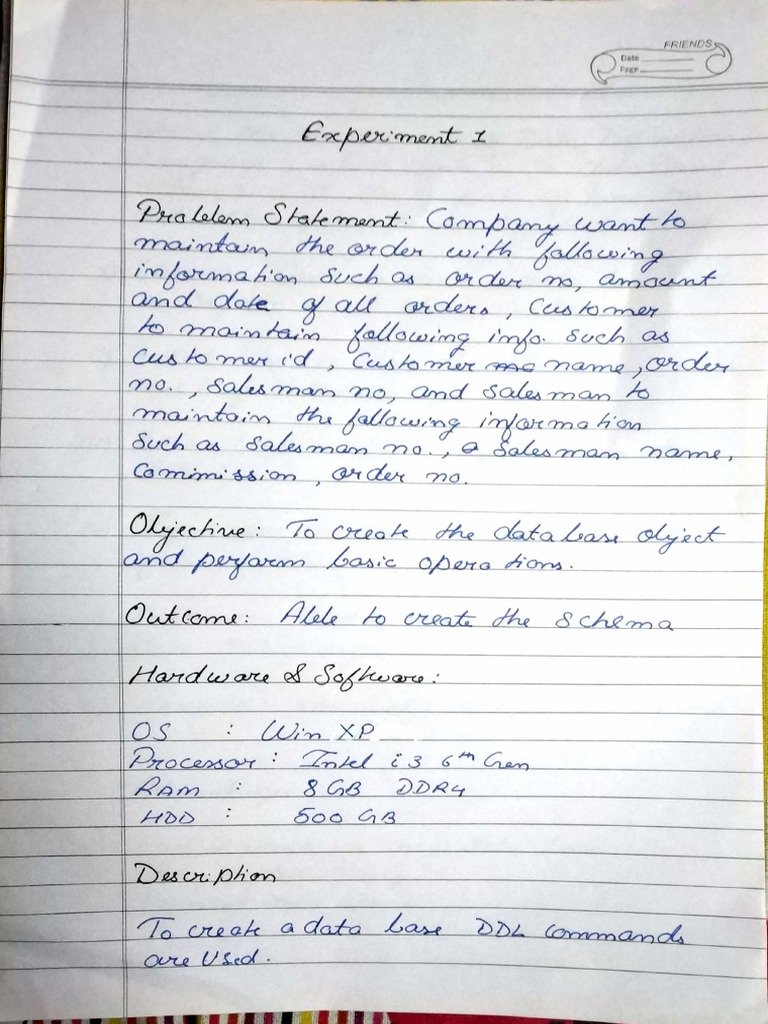 FRIENDS
Date
Page
Experiment 1
Problem Statement: Company want to
maintain the order with following
information such as order no, amount
and date of all orders, Customer
to maintain following info. such as
customer id, customer name, order
no., salesman no, and salesman to
maintain the following information
such as salesman no., salesman name,
commission, order no.
Objective: To create the database object
and perform basic operations.
Outcome: Able to create the schema
Hardware & Software:
OS : Win XP
Processor: Intel i3 6th Gen
RAM : 8 GB DDR4
HDD : 500 GB
Description
To create a data base DDL commands
are used.